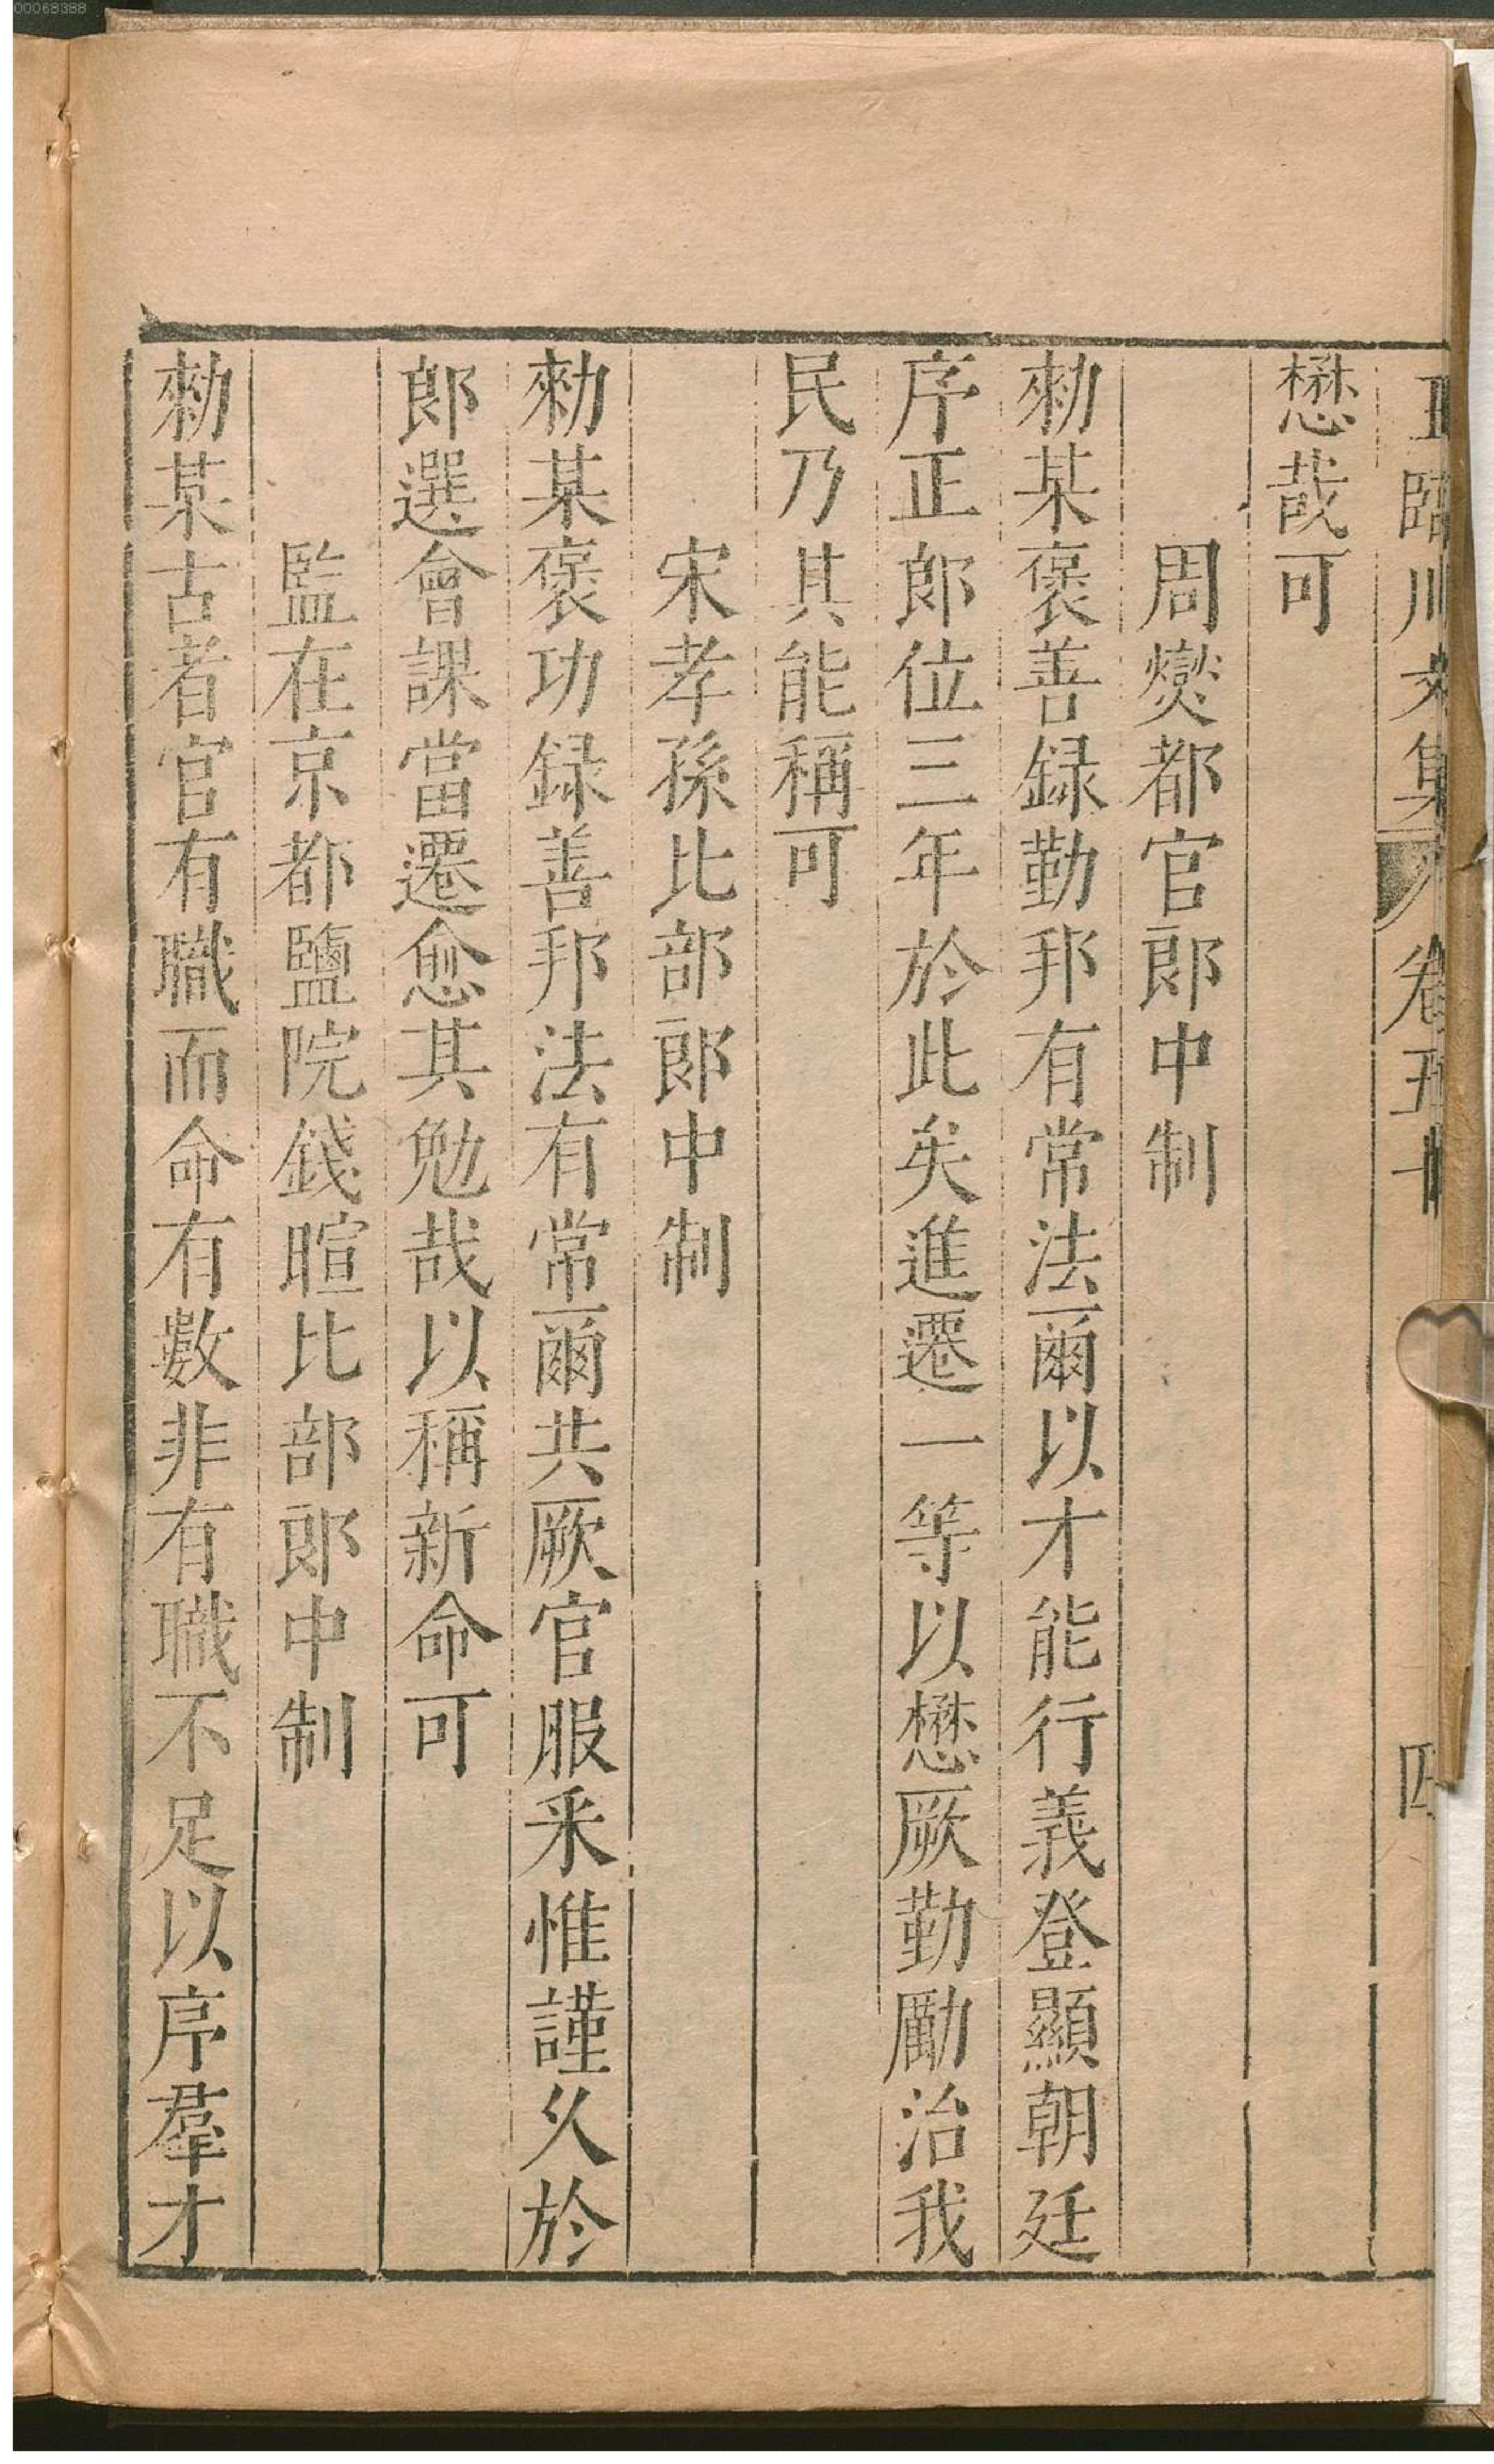 00068388
王臨川文集 卷五十 四
懋哉可
周爕都官郎中制
勑某褒善録勤邦有常法爾以才能行義登顯朝廷
序正郎位三年於此矣進遷一等以懋厥勤勵治我
民乃其能稱可
宋孝孫比部郎中制
勑某褒功録善邦法有常爾共厥官服采惟謹久於
郎選會課當遷愈其勉哉以稱新命可
監在京都鹽院錢暄比部郎中制
勑某古者官有職而命有數非有職不足以序羣才